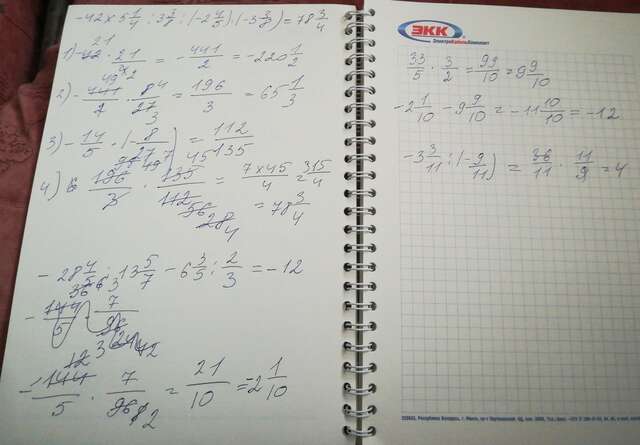 -42 × 5 1/4 : 3 3/8 : (-2 4/5) : (-3 3/8) = 78 3/4
1) -42 · 21/4 = -441/2 = -220 1/2
2) -441/2 · 8/27 = 196/3 = 65 1/3
3) -14/5 · (-8/27) = 112/135
4) 196/3 · 135/112 = 7×45/4 = 315/4 = 78 3/4
-28 4/5 : 13 5/7 - 6 3/5 : 2/3 = -12
-144/5 · 7/96
-144/5 · 7/96 = 21/10 = -2 1/10
ЭКК
ЭлектроКабельКомплект
33/5 · 3/2 = 99/10 = 9 9/10
-2 1/10 - 9 9/10 = -11 10/10 = -12
-3 3/11 : (-9/11) = 36/11 · 11/9 = 4